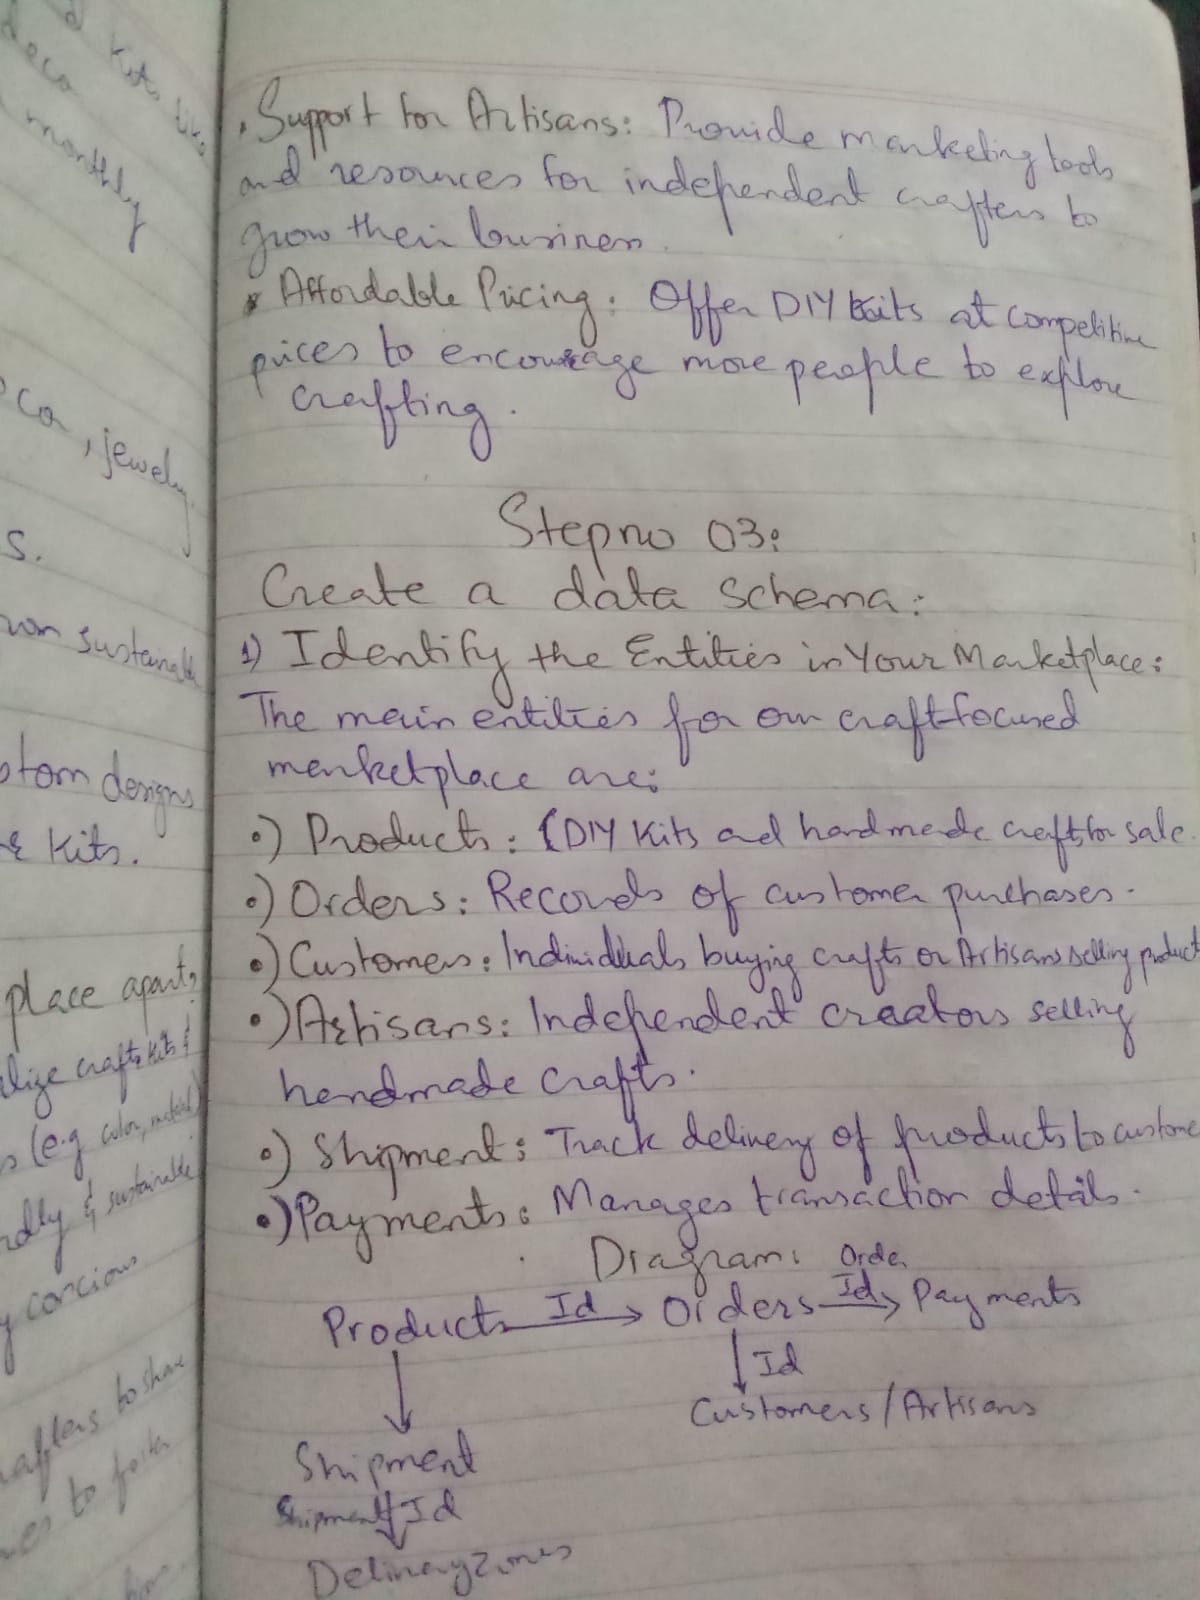 d kits like
deco
monthly
oca, jewelry.
s.
sustainable
stom designs
& kits.
place apart,
alize crafts kits &
s (e.g color, material)
ndly & sustainable
y concious
rafters to share
to foster
• Support for Artisans: Provide marketing tools
and resources for independent crafters to
grow their business.
* Affordable Pricing: Offer DIY kits at competitive
prices to encourage more people to explore
crafting.
Stepno 03:
Create a data schema:
1) Identify the Entities in Your Marketplace:
The main entities for our craft-focused
marketplace are:
•) Products: (DIY Kits and handmade crafts for sale.
•) Orders: Records of customer purchases.
•) Customers: Individuals buying crafts or Artisans selling product
•) Artisans: Independent creators selling
handmade crafts.
•) Shipment: Track delivery of products to custome
•) Payments: Manages transaction details.
Diagram:
Order
Products Id → Orders Id → Payments
↓ Id
Customers/Artisans
↓
Shipment
Shipment Id
Delivery Zones